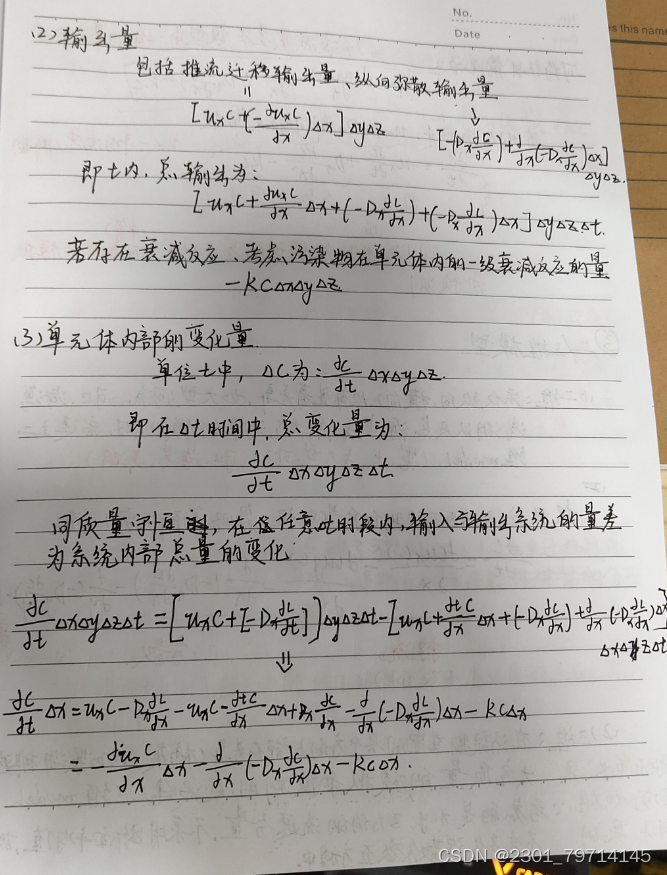 No.
Date
s this name
(2) 输出量
包括推流迁移输出量、纵向弥散输出量
= ↓
[uxC+(-∂uxC/∂x)Δx]ΔyΔz [-(Dx∂C/∂x)+∂/∂x(-Dx∂C/∂x)Δx]ΔyΔz.
即t内,总输出为:
[uxC+∂uxC/∂x Δx+(-Dx∂C/∂x)+(-Dx∂C/∂x)Δx]ΔyΔzΔt.
若存在衰减反应、考虑污染物在单元体内的一级衰减反应的量
-KCΔxΔyΔz
(3) 单元体内部的变化量
单位t中,ΔC为:∂C/∂t ΔxΔyΔz.
即在Δt时间中,总变化量为:
∂C/∂t ΔxΔyΔzΔt
同质量守恒,在任意时段内,输入与输出系统的量差
为系统内部总量的变化
∂C/∂t ΔxΔyΔzΔt=[uxC+[-Dx∂C/∂t]]ΔyΔzΔt-[uxC+∂tC/∂x Δx+(-Dx∂C/∂x)+∂/∂x(-Dx∂C/∂x)Δx]
ΔxΔyΔzΔt
⇓
∂C/∂t Δx=uxC-Dx∂C/∂x-uxC-∂tC/∂x Δx+Dx∂C/∂x-∂/∂x(-Dx∂C/∂x)Δx-KCΔx
=-∂uxC/∂x Δx-∂/∂x(-Dx∂C/∂x)Δx-KCΔx.
CSDN @2301_79714145